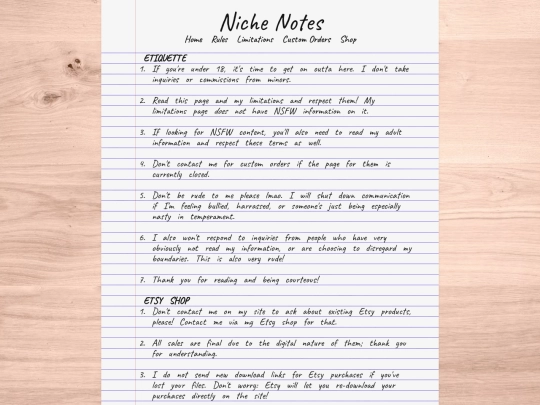 Niche Notes
Home Rules Limitations Custom Orders Shop
ETIQUETTE
1. If you're under 18, it's time to get on outta here. I don't take
inquiries or commissions from minors.
2. Read this page and my limitations and respect them! My
limitations page does not have NSFW information on it.
3. If looking for NSFW content, you'll also need to read my adult
information and respect these terms as well.
4. Don't contact me for custom orders if the page for them is
currently closed.
5. Don't be rude to me please lmao. I will shut down communication
if I'm feeling bullied, harrassed, or someone's just being especially
nasty in temperament.
6. I also won't respond to inquiries from people who have very
obviously not read my information, or are choosing to disregard my
boundaries. This is also very rude!
7. Thank you for reading and being courteous!
ETSY SHOP
1. Don't contact me on my site to ask about existing Etsy products,
please! Contact me via my Etsy shop for that.
2. All sales are final due to the digital nature of them; thank you
for understanding.
3. I do not send new download links for Etsy purchases if you've
lost your files. Don't worry: Etsy will let you re-download your
purchases directly on the site!